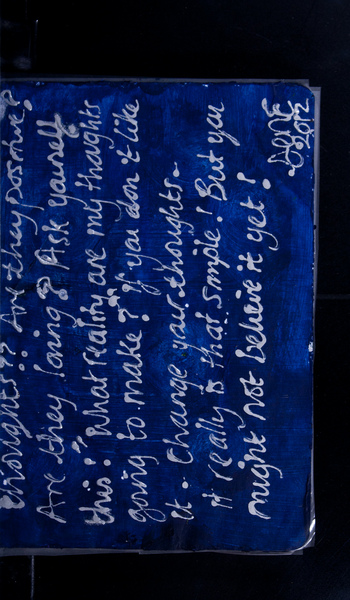 thoughts?? Are they positive?
Are they loving? Ask yourself
this: "What reality are my thoughts
going to make?" If you don't like
it - Change your thoughts.
it really is that simple! But you
might not believe it yet!
2012